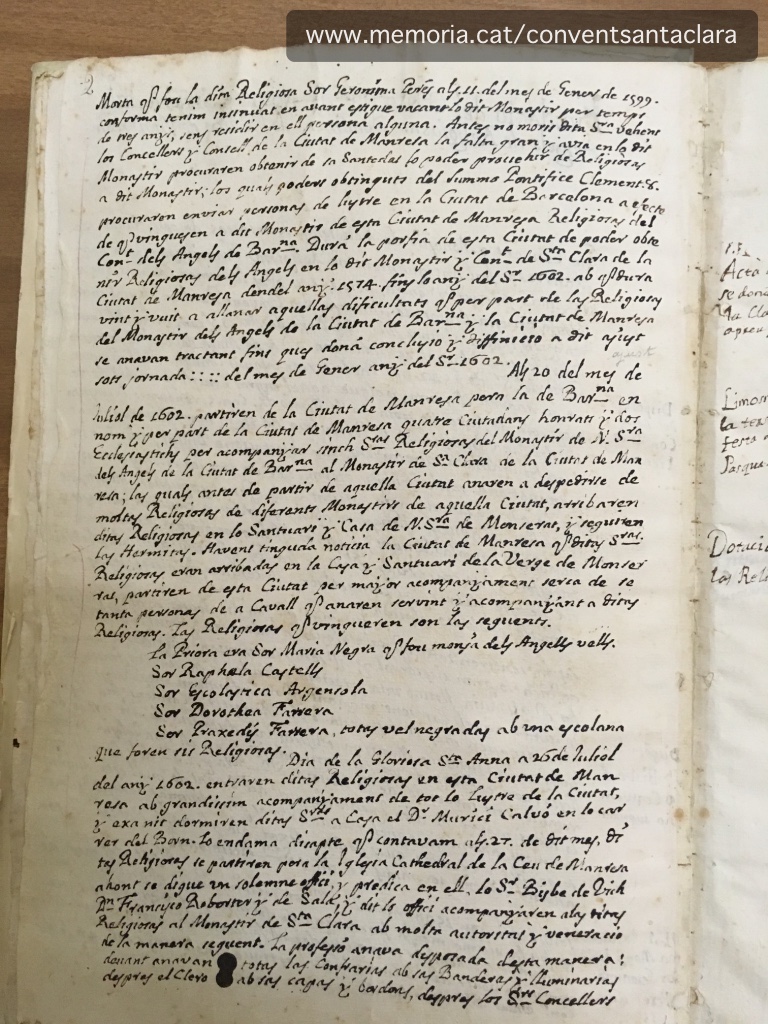 www.memoria.cat/conventsantaclara
2
Morta qᵉ fou la dita Religiosa Sor Geronima Peres als 11. del mes de Gener de 1599.
conforma tenim insinuat en avant estigue vacant lo dit Monastir per temps
de tres anys, sens residir en ell persona alguna. Antes no moris dita Sra. vehent
los Concellers y Consell de la Ciutat de Manresa la falta gran y avia en lo dit
Monastir procuraren obtenir de sa Santedat lo poder provehir de Religiosas
a dit Monastir; los quals poders obtinguts del summo Pontifice Clement 8.
procuraren enviar personas de lustre en la Ciutat de Barcelona a efecte
de qᵉ vinguesen a dit Monastir de esta Ciutat de Manresa Religiosas del
Cont. dels Angels de Barna. Durà la porfia de esta Ciutat de poder obte
nir Religiosas dels Angels en lo dit Monastir y Cont. de Sta Clara de la
Ciutat de Manresa dendel any 1574. fins lo any del Sr. 1602. ab qᵉ dura
vint y vuit a allanar aquellas dificultats qᵉ per part de las Religiosas
del Monastir dels Angels de la Ciutat de Barna y la Ciutat de Manresa
se anavan tractant fins ques donà conclusió y diffinició a dit ajust
sots jornada :::: del mes de Gener any del Sr. 1602. Als 20 del mes de
Iuliol de 1602. partiren de la Ciutat de Manresa pera la de Barna en
nom y per part de la Ciutat de Manresa quatre Ciutadans honrats y dos
Ecclesiastichs per acompanyar sinch Sras Religiosas del Monastir de N. Sra
dels Angels de la Ciutat de Barna al Monastir de Sa Clara de la Ciutat de Man
resa; las quals antes de partir de aquella Ciutat anaren a despedirse de
moltas Religiosas de diferents Monastirs de aquella Ciutat, arribaren
ditas Religiosas en lo Santuari y Casa de N. Sra de Monserat, y seguiren
las Hermitas. Havent tinguda noticia la Ciutat de Manresa qᵉ ditas Sras.
Religiosas eran arribadas en la Casa y Santuari de la Verge de Monser
rat, partiren de esta Ciutat per major acompanyament serca de se
tanta personas de a Cavall qᵉ anaren servint y acompanyant a ditas
Religiosas. Las Religiosas qᵉ vingueren son las seguents.
La Priora era Sor Maria Negra qᵉ fou monja dels Angells vells.
Sor Raphæla Castells
Sor Escolastica Argensola
Sor Dorothea Farrera
Sor Praxedis Farrera, totas vel negradas ab una escolana
que foren sis Religiosas. Dia de la Gloriosa Sta Anna a 26 de Iuliol
del any 1602. entraren ditas Religiosas en esta Ciutat de Man
resa ab grandissim acompanyament de tot lo lustre de la Ciutat,
y exa nit dormiren ditas Sras a Casa el Dr. Murici Calvó en lo car
rer del Born. Lo endama disapte qᵉ contavam als 27. de dit mes, di
tas Religiosas se partiren pera la Iglesia Cathedral de la Ceu de Manresa
ahont se digue un solemne offici, y predica en ell, lo Sr. Bisbe de Vich
Dn Francisco Roborter y de Sala, y dit lo offici acompanyaren a las ditas
Religiosas al Monastir de Sta Clara ab molta autoritat y veneració
de la manera seguent. La professó anava desposada desta manera:
devant anavan totas las Confrarias ab sas Banderas y lluminarias
despres el Clero ab sas capas y bordons, despres los Srs Concellers
Acta
se dona
Limos
la tex
festa
Pasqua
Dotació
las Reli